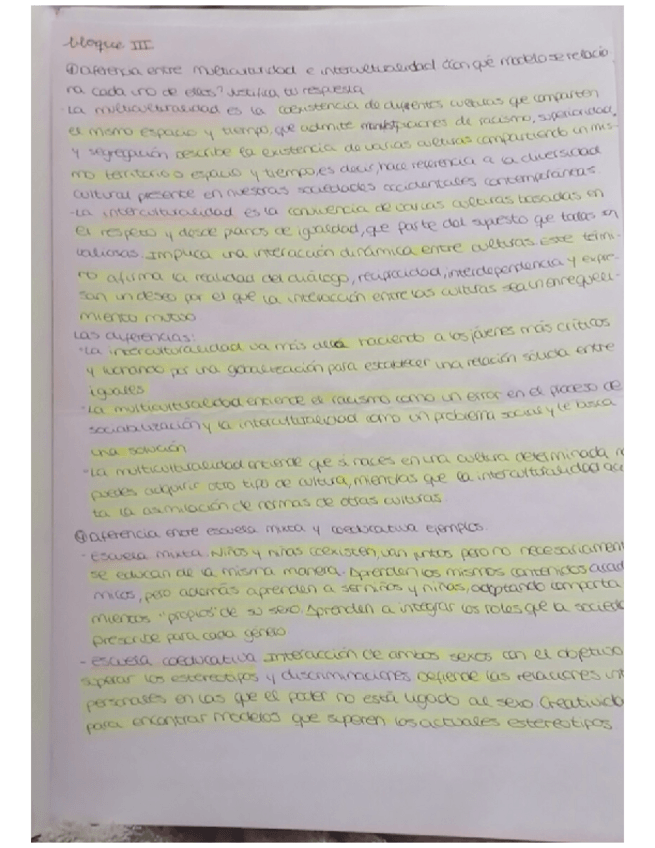 bloque III
① Diferencia entre multiculturalidad e interculturalidad ¿con qué modelo se relacio
na cada uno de ellos? Justifica tu respuesta
- La multiculturalidad es la coexistencia de diferentes culturas que comparten
el mismo espacio y tiempo, que admite manifestaciones de racismo, superioridad,
y segregación describe la existencia de varias culturas compartiendo un mis-
mo territorio o espacio y tiempo, es decir, hace referencia a la diversidad
cultural presente en nuestras sociedades occidentales contemporáneas.
- La interculturalidad es la convivencia de varias culturas basadas en
el respeto y desde planos de igualdad, que parte del supuesto que todas son
valiosas. Implica una interacción dinámica entre culturas. Este térmi-
no afirma la realidad del diálogo, reciprocidad, interdependencia y expre-
san un deseo por el que la interacción entre las culturas sea un enriqueci-
miento mutuo
Las diferencias:
- La interculturalidad va más allá haciendo a los jóvenes más críticos
y luchando por una globalización para establecer una relación sólida entre
iguales
- La multiculturalidad entiende el racismo como un error en el proceso de
sociabilización y la interculturalidad como un problema social y le busca
una solución
- La multiculturalidad entiende que si naces en una cultura determinada n
puedes adquirir otro tipo de cultura, mientras que la interculturalidad ace
ta la asimilación de normas de otras culturas.
Diferencia entre escuela mixta y coeducativa ejemplos.
- Escuela mixta. Niños y niñas coexisten, van juntos pero no necesariamen
se educan de la misma manera. Aprenden los mismos contenidos acad
micos, pero además aprenden a ser niños y niñas, adoptando comporta
mientos "propios" de su sexo. Aprenden a integrar los roles que la socied
prescribe para cada género.
- escuela coeducativa Interacción de ambos sexos con el objetivo
superar los estereotipos y discriminaciones Defiende las relaciones int
personales en las que el poder no está ligado al sexo Creativida
para encontrar modelos que superen los actuales estereotipos